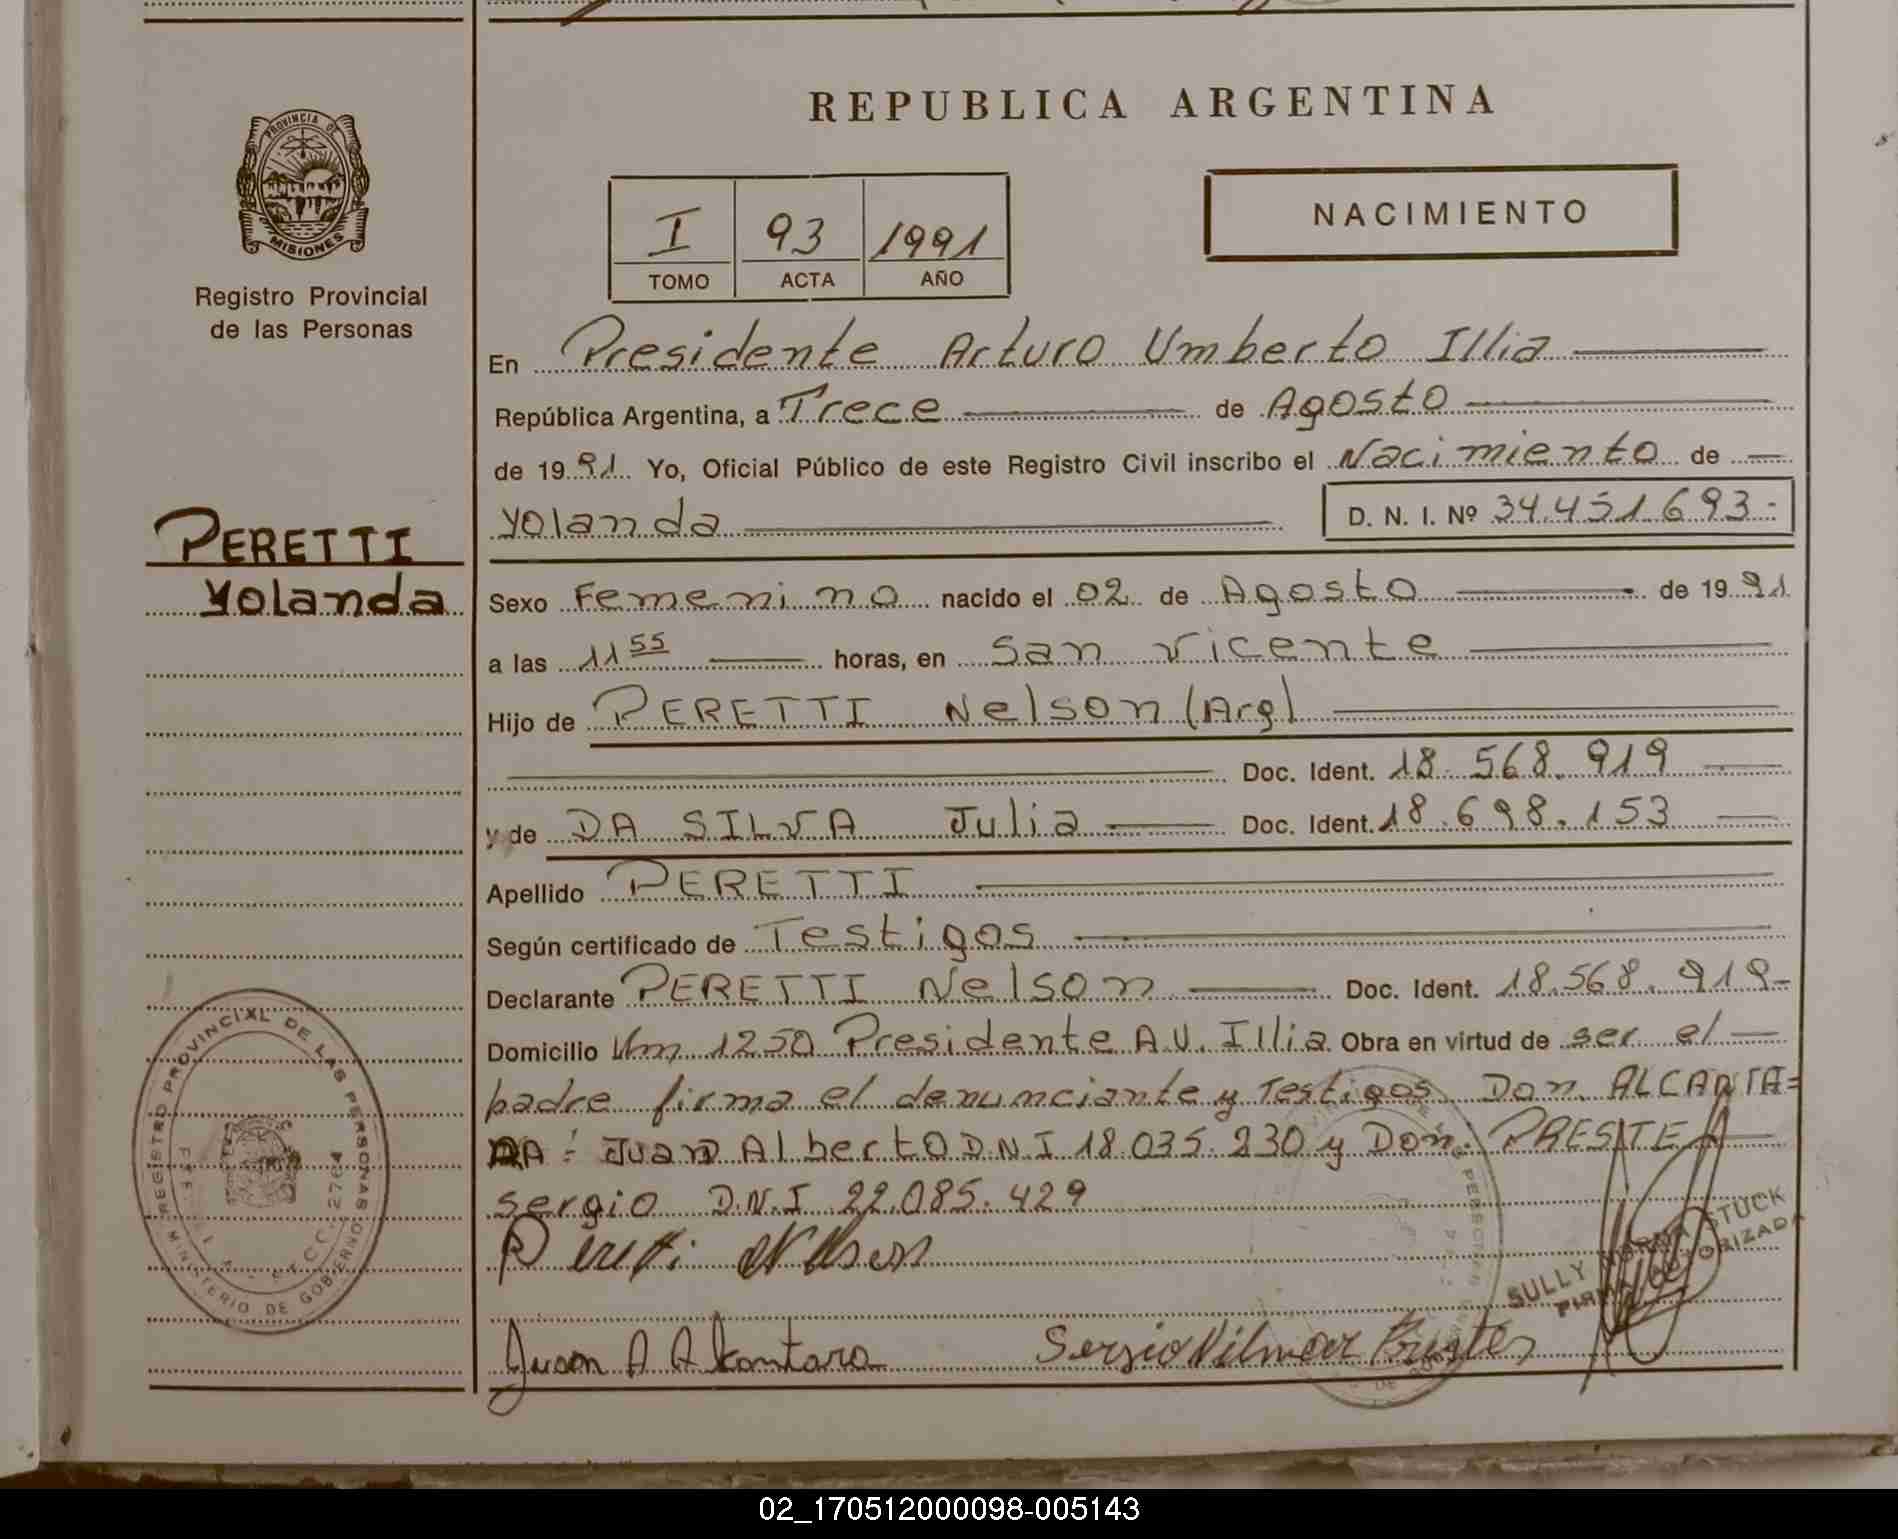 REPUBLICA ARGENTINA
PROVINCIA DE
MISIONES
Registro Provincial
de las Personas
I 93 1991
TOMO ACTA AÑO
NACIMIENTO
En Presidente Arturo Umberto Illia
República Argentina, a Trece de Agosto
de 1991 Yo, Oficial Público de este Registro Civil inscribo el Nacimiento de
Yolanda D. N. I. Nº 34.451.693-
PERETTI
Yolanda
Sexo Femenino nacido el 02 de Agosto de 1991
a las 11 55 horas, en San Vicente
Hijo de PERETTI Nelson (Arg)
Doc. Ident. 18.568.919
y de DA SILVA Julia Doc. Ident. 18.698.153
Apellido PERETTI
Según certificado de Testigos
Declarante PERETTI Nelson Doc. Ident. 18.568.919-
Domicilio Km 1250 Presidente A.U. Illia Obra en virtud de ser el
padre firma el denunciante y Testigos Don. ALCANTA=
RA: Juan Alberto D.N.I 18.035.230 y Don. PRESTE
sergio D.N.I 22.085.429
Peretti Nelson
Juan A Alcantara Sergio Vilmar Prestes
SULLY STUCK
FIRMA AUTORIZADA
REGISTRO PROVINCIAL DE LAS PERSONAS
MINISTERIO DE GOBIERNO
02_170512000098-005143